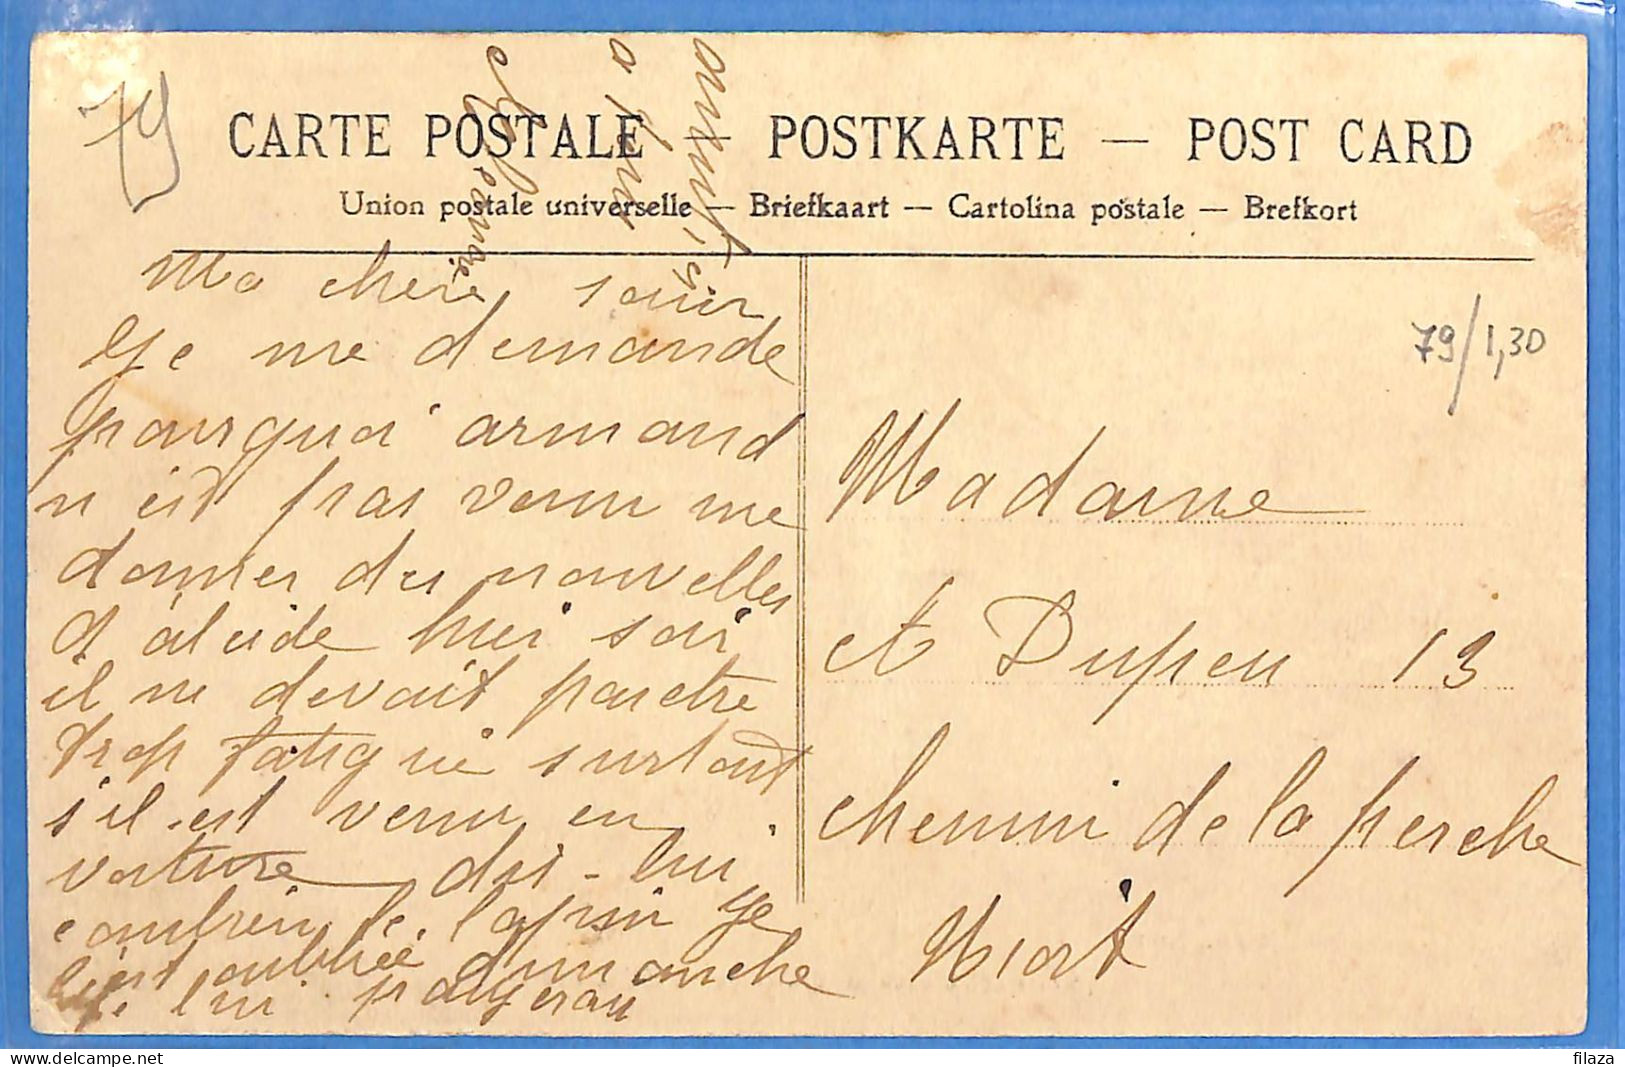 79
CARTE POSTALE — POSTKARTE — POST CARD
Union postale universelle — Briefkaart — Cartolina postale — Brefkort
79/1,30
Ma chere sœur
Je me demande
pourquoi armand
n est pas venu me
donner des nouvelles
d'alcide hier soir
il ne devait paretre
trop fatigué surtout
s'il est venu en
voiture dis-lui
combien le lapin je
l'est oublié dimanche
je lui payerau
Madame
et Dupeu 13
chemin de la perche
Niort
filaza